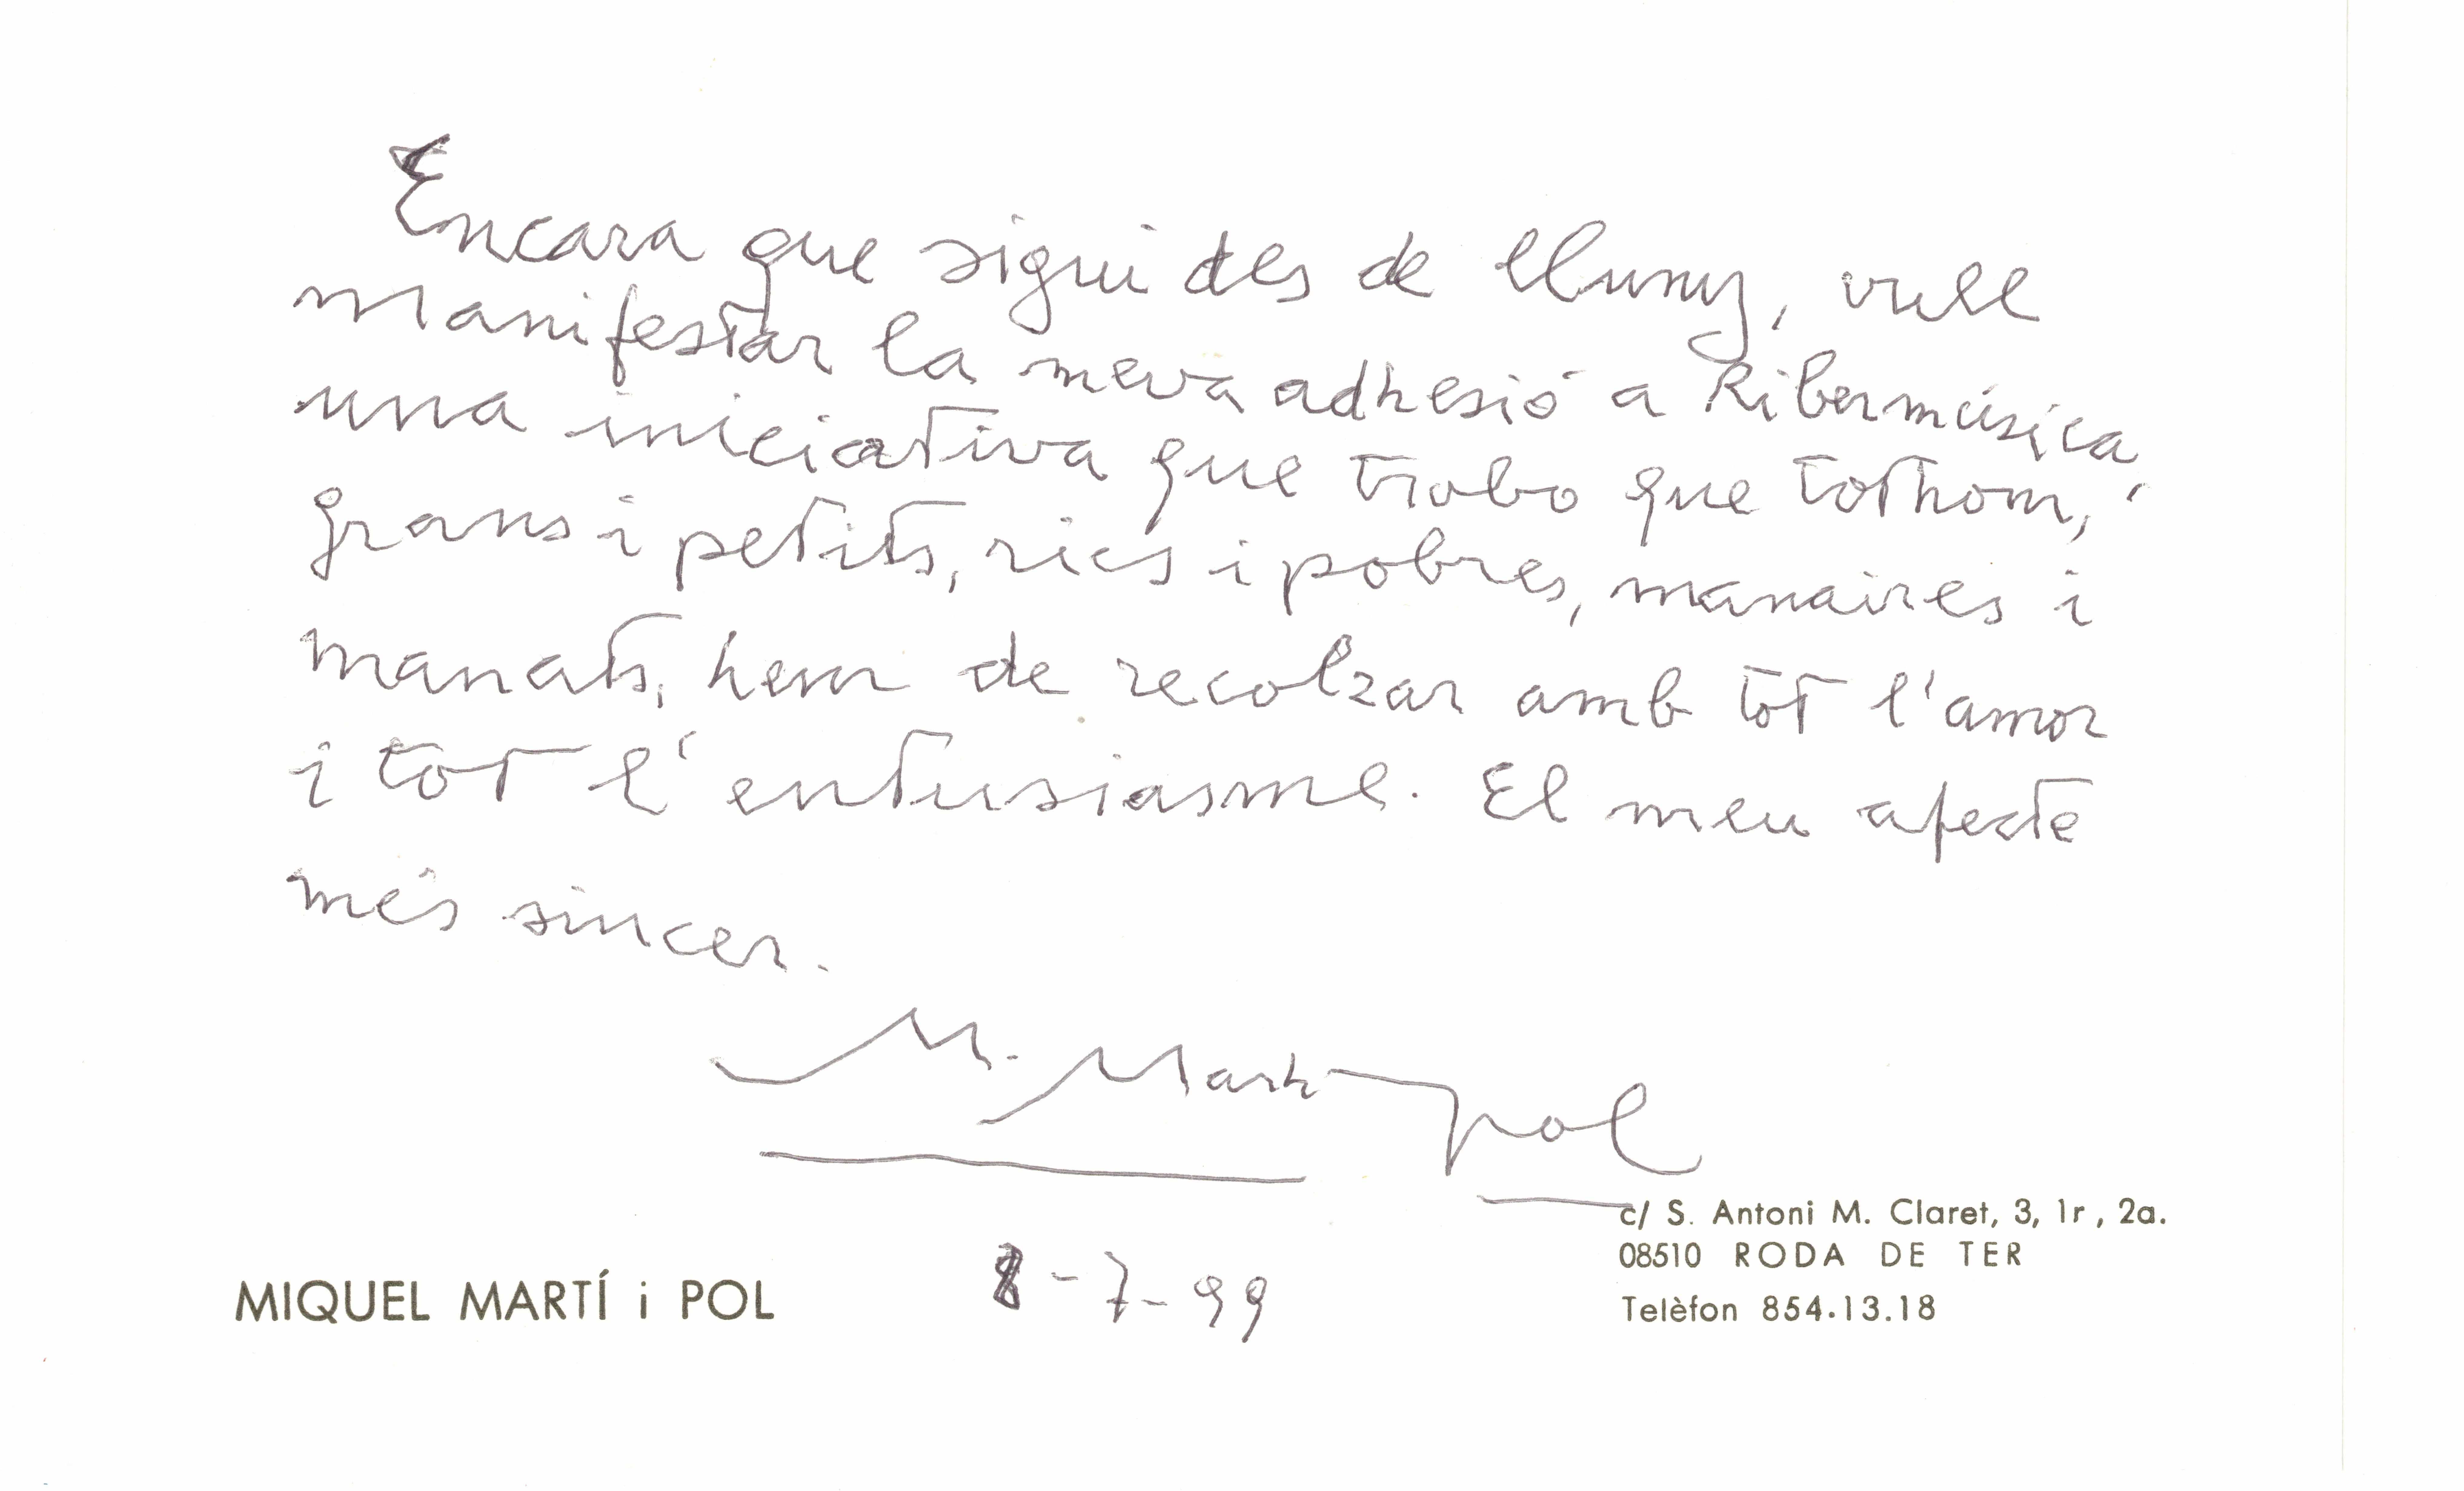 Encara que sigui des de lluny, vull
manifestar la meva adhesió a Ribermúsica,
una iniciativa que trobo que tothom,
grans i petits, rics i pobres, manaires i
manats, hem de recolzar amb tot l'amor
i tot l'entusiasme. El meu afecte
més sincer.
M. Martí Pol
8-7-99
MIQUEL MARTÍ i POL
c/ S. Antoni M. Claret, 3, 1r, 2a.
08510 RODA DE TER
Telèfon 854.13.18